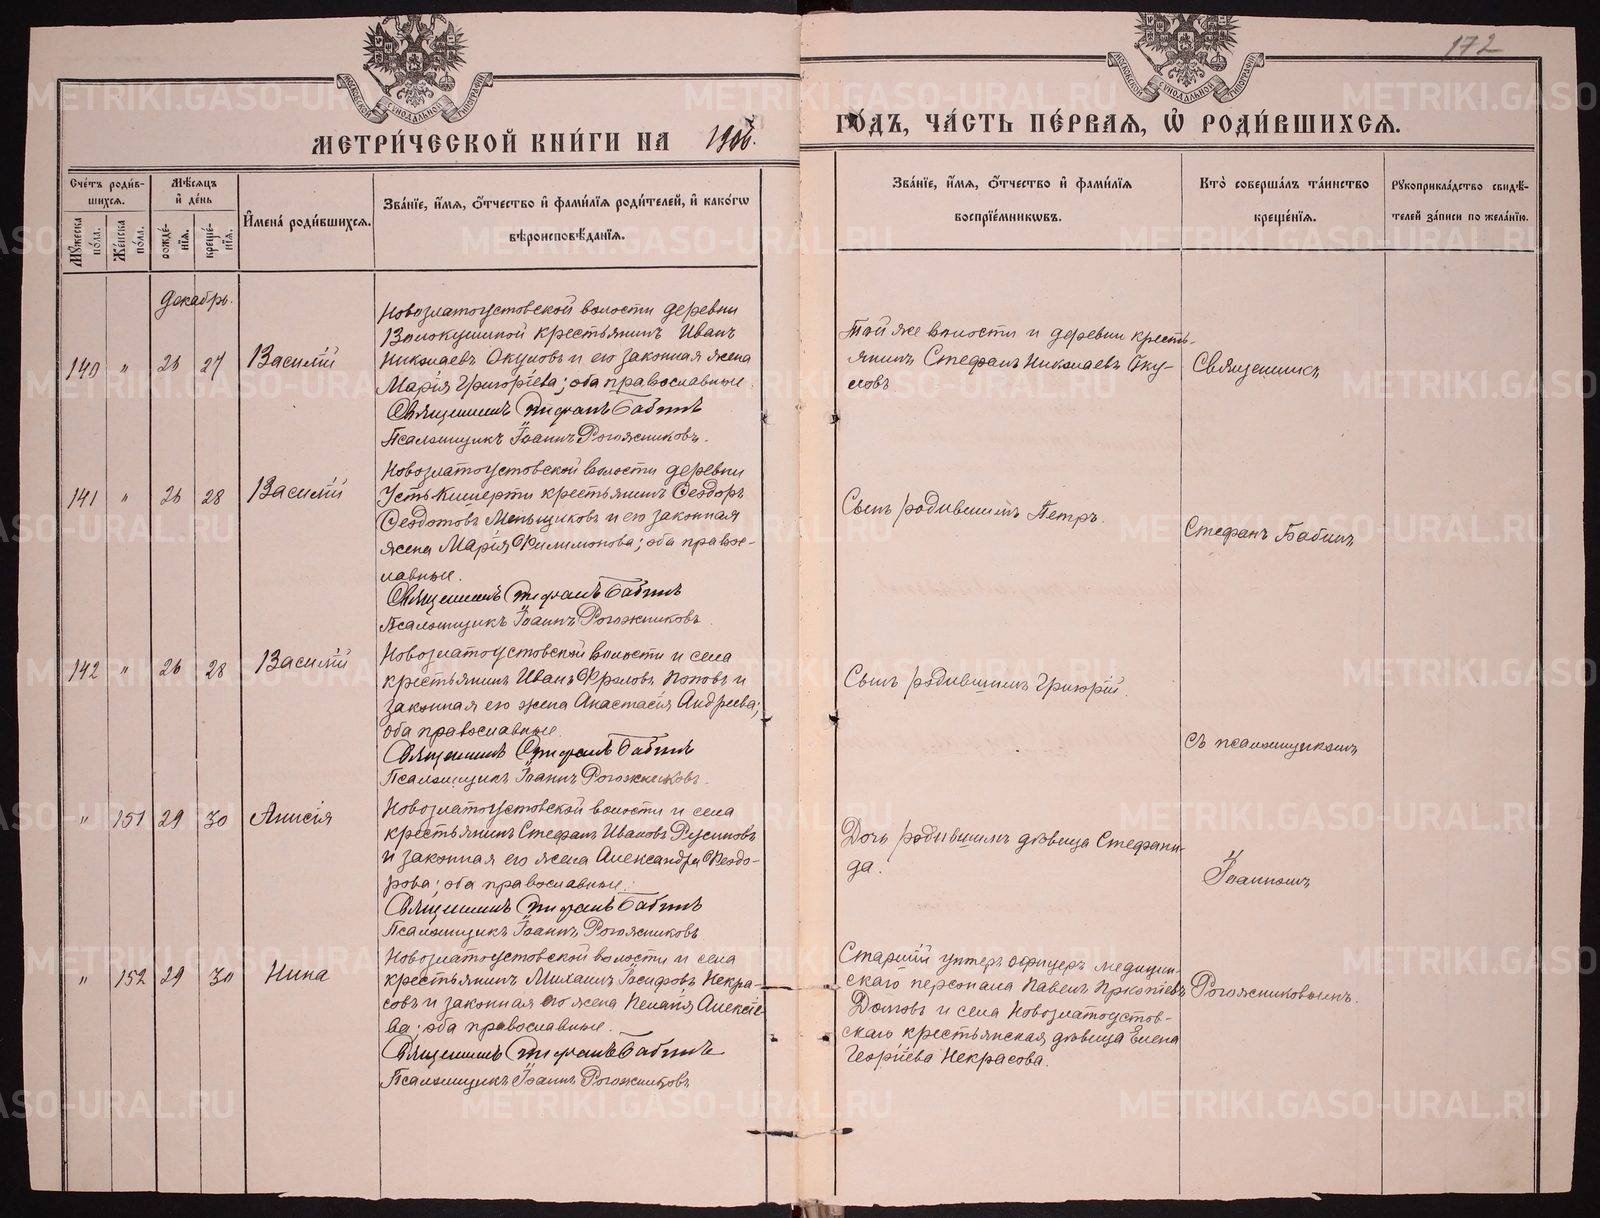 172
МОСКОВСКОЙ СѴНОДАЛЬНОЙ ТИПОГРАФІИ
МОСКОВСКОЙ СѴНОДАЛЬНОЙ ТИПОГРАФІИ
МЕТРИ́ЧЕСКОЙ КНИ́ГИ НА 1906. ГО́ДЪ, ЧА́СТЬ ПЕ́РВАЯ, Ѡ РОДИ́ВШИХСЯ.
Сче́тъ роди́в-
шихся.
Мꙋ́жеска
по́ла.
Же́нска
по́ла.
Мѣ́сяцъ
и де́нь
рожде́-
нїя.
креще́-
нїя.
И҆мена̀ роди́вшихся.
Зва́нїе, и҆́мя, ѻ҆́тчество и҆ фами́лїя роди́телей, и҆ како́гѡ
вѣроисповѣ́данїя.
Зва́нїе, и҆́мя, ѻ҆́тчество и҆ фами́лїя
воспрїе́мникѡвъ.
Кто̀ соверша́лъ та́инство
креще́нїя.
Рꙋкоприкла́дство свидѣ́-
телей за́писи по жела́нїю.
Декабрь.
140 " 26 27 Василій
Новозлатоустовской волости деревни
Волокушиной крестьянинъ Иванъ
Николаевъ Окуловъ и его законная жена
Марія Григоріева; оба православные.
Священникъ Стефанъ Бабинъ
Псаломщикъ Іоаннъ Рогожниковъ.
Той же волости и деревни кресть-
янинъ Стефанъ Николаевъ Оку-
ловъ
Священникъ
141 " 26 28 Василій
Новозлатоустовской волости деревни
Усть-Кишерти крестьянинъ Ѳеодоръ
Ѳедотовъ Меньщиковъ и его законная
жена Марія Филимонова; оба правос-
лавные.
Священникъ Стефанъ Бабинъ
Псаломщикъ Іоаннъ Рогожниковъ.
Сынъ родившимъ Петръ.
Стефанъ Бабинъ
142 " 26 28 Василій
Новозлатоустовской волости и села
крестьянинъ Иванъ Фроловъ Поповъ и
законная его жена Анастасія Андреева;
оба православные.
Священникъ Стефанъ Бабинъ
Псаломщикъ Іоаннъ Рогожниковъ.
Сынъ родившимъ Григорій.
съ псаломщикомъ
" 151 29 30 Анисія
Новозлатоустовской волости и села
крестьянинъ Стефанъ Ивановъ Русиновъ
и законная его жена Александра Ѳеодо-
рова; оба православные.
Священникъ Стефанъ Бабинъ
Псаломщикъ Іоаннъ Рогожниковъ
Дочь родившимъ дѣвица Стефани-
да.
Іоанномъ
" 152 29 30 Нина
Новозлатоустовской волости и села
крестьянинъ Михаилъ Іосифовъ Некра-
совъ и законная его жена Пелагія Алексіе-
ва; оба православные.
Священникъ Стефанъ Бабинъ
Псаломщикъ Іоаннъ Рогожниковъ
Старшій унтеръ офицеръ медицин-
скаго персонала Павелъ Прокопіевъ
Домовъ и села Новозлатоустов-
скаго крестьянская дѣвица Елена
Георгіева Некрасова.
Рогожниковымъ.
METRIKI.GASO-URAL.RU